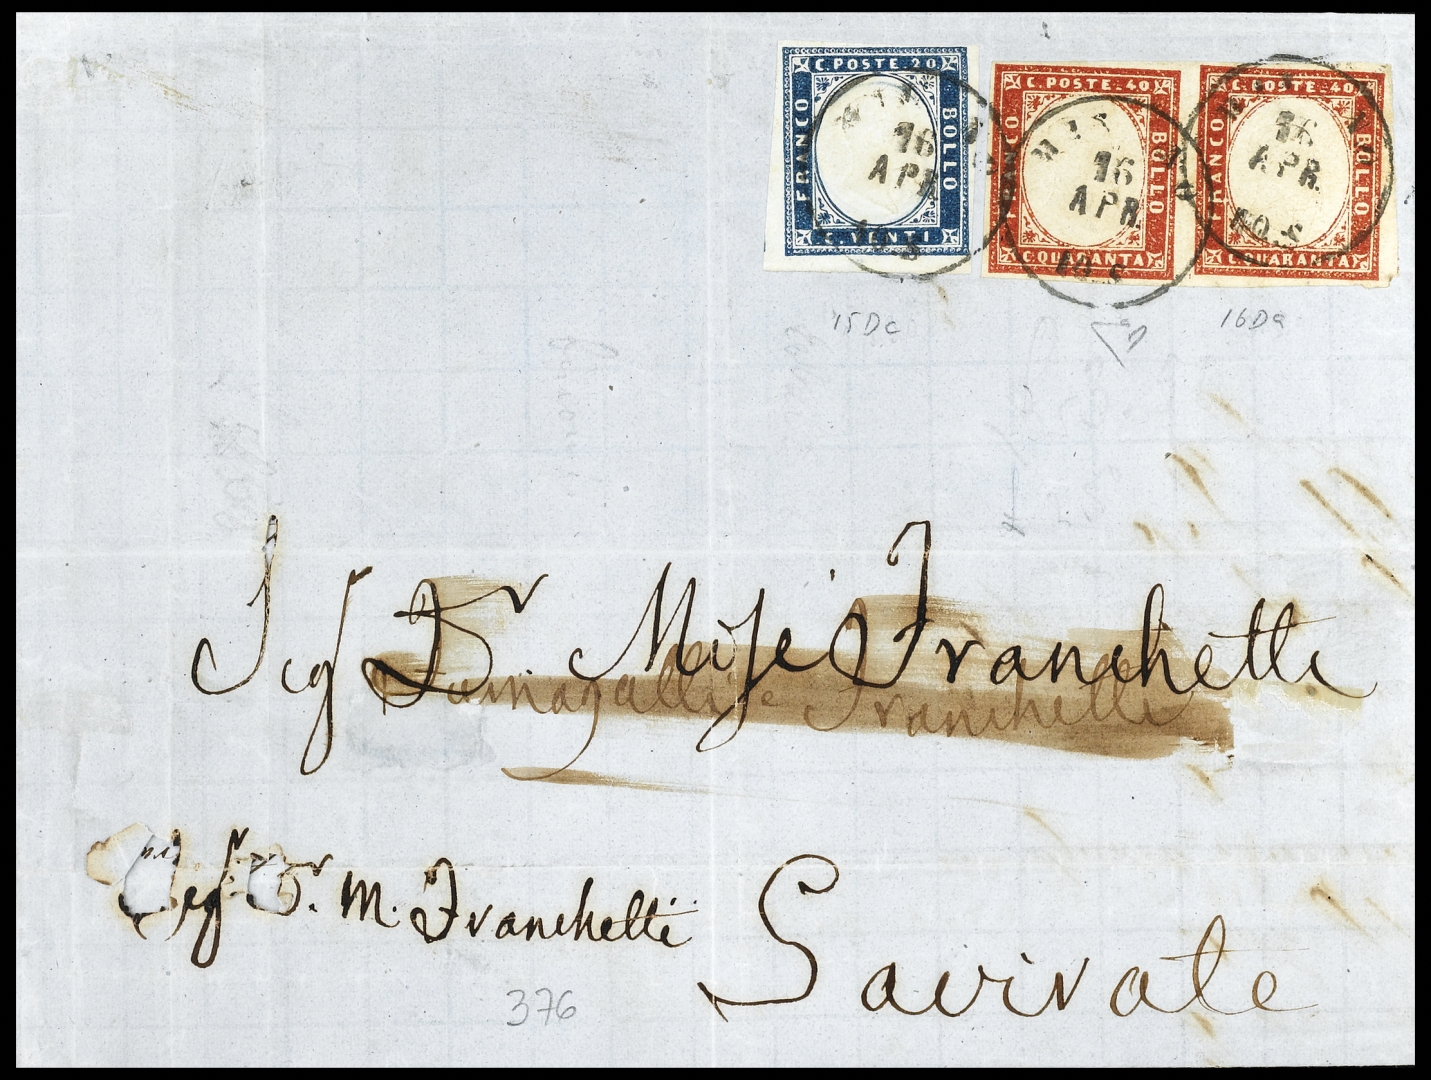 C. POSTE. 20
FRANCO
BOLLO
C. VENTI
C. POSTE. 40
FRANCO
BOLLO
C. QUARANTA
C. POSTE. 40
FRANCO
BOLLO
C. QUARANTA
16
APR.
10. S
16
APR.
10. S
16
APR.
10. S
15Dc
16Da
Sigr Dr. Moisè Franchetti
Fumagalli Franchetti
Sigr Dr. M. Franchetti
Gavirate
376